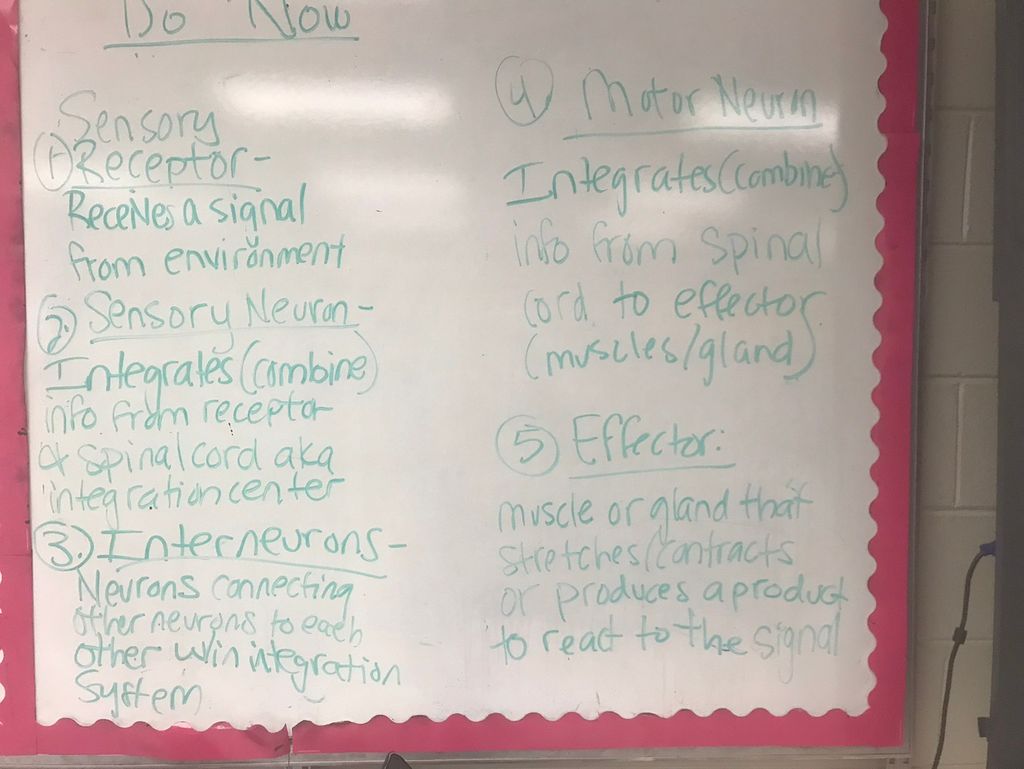 Do Now
Sensory
1) Receptor-
Receives a signal
from environment
2. Sensory Neuron-
Integrates (combine)
info from receptor
& spinal cord aka
integration center
3. Interneurons-
Neurons connecting
other neurons to each
other w/in integration
System
4 Motor Neuron
Integrates (combine)
info from spinal
cord to effector
(muscles/gland)
5 Effector:
muscle or gland that
stretches/contracts
or produces a product
to react to the signal